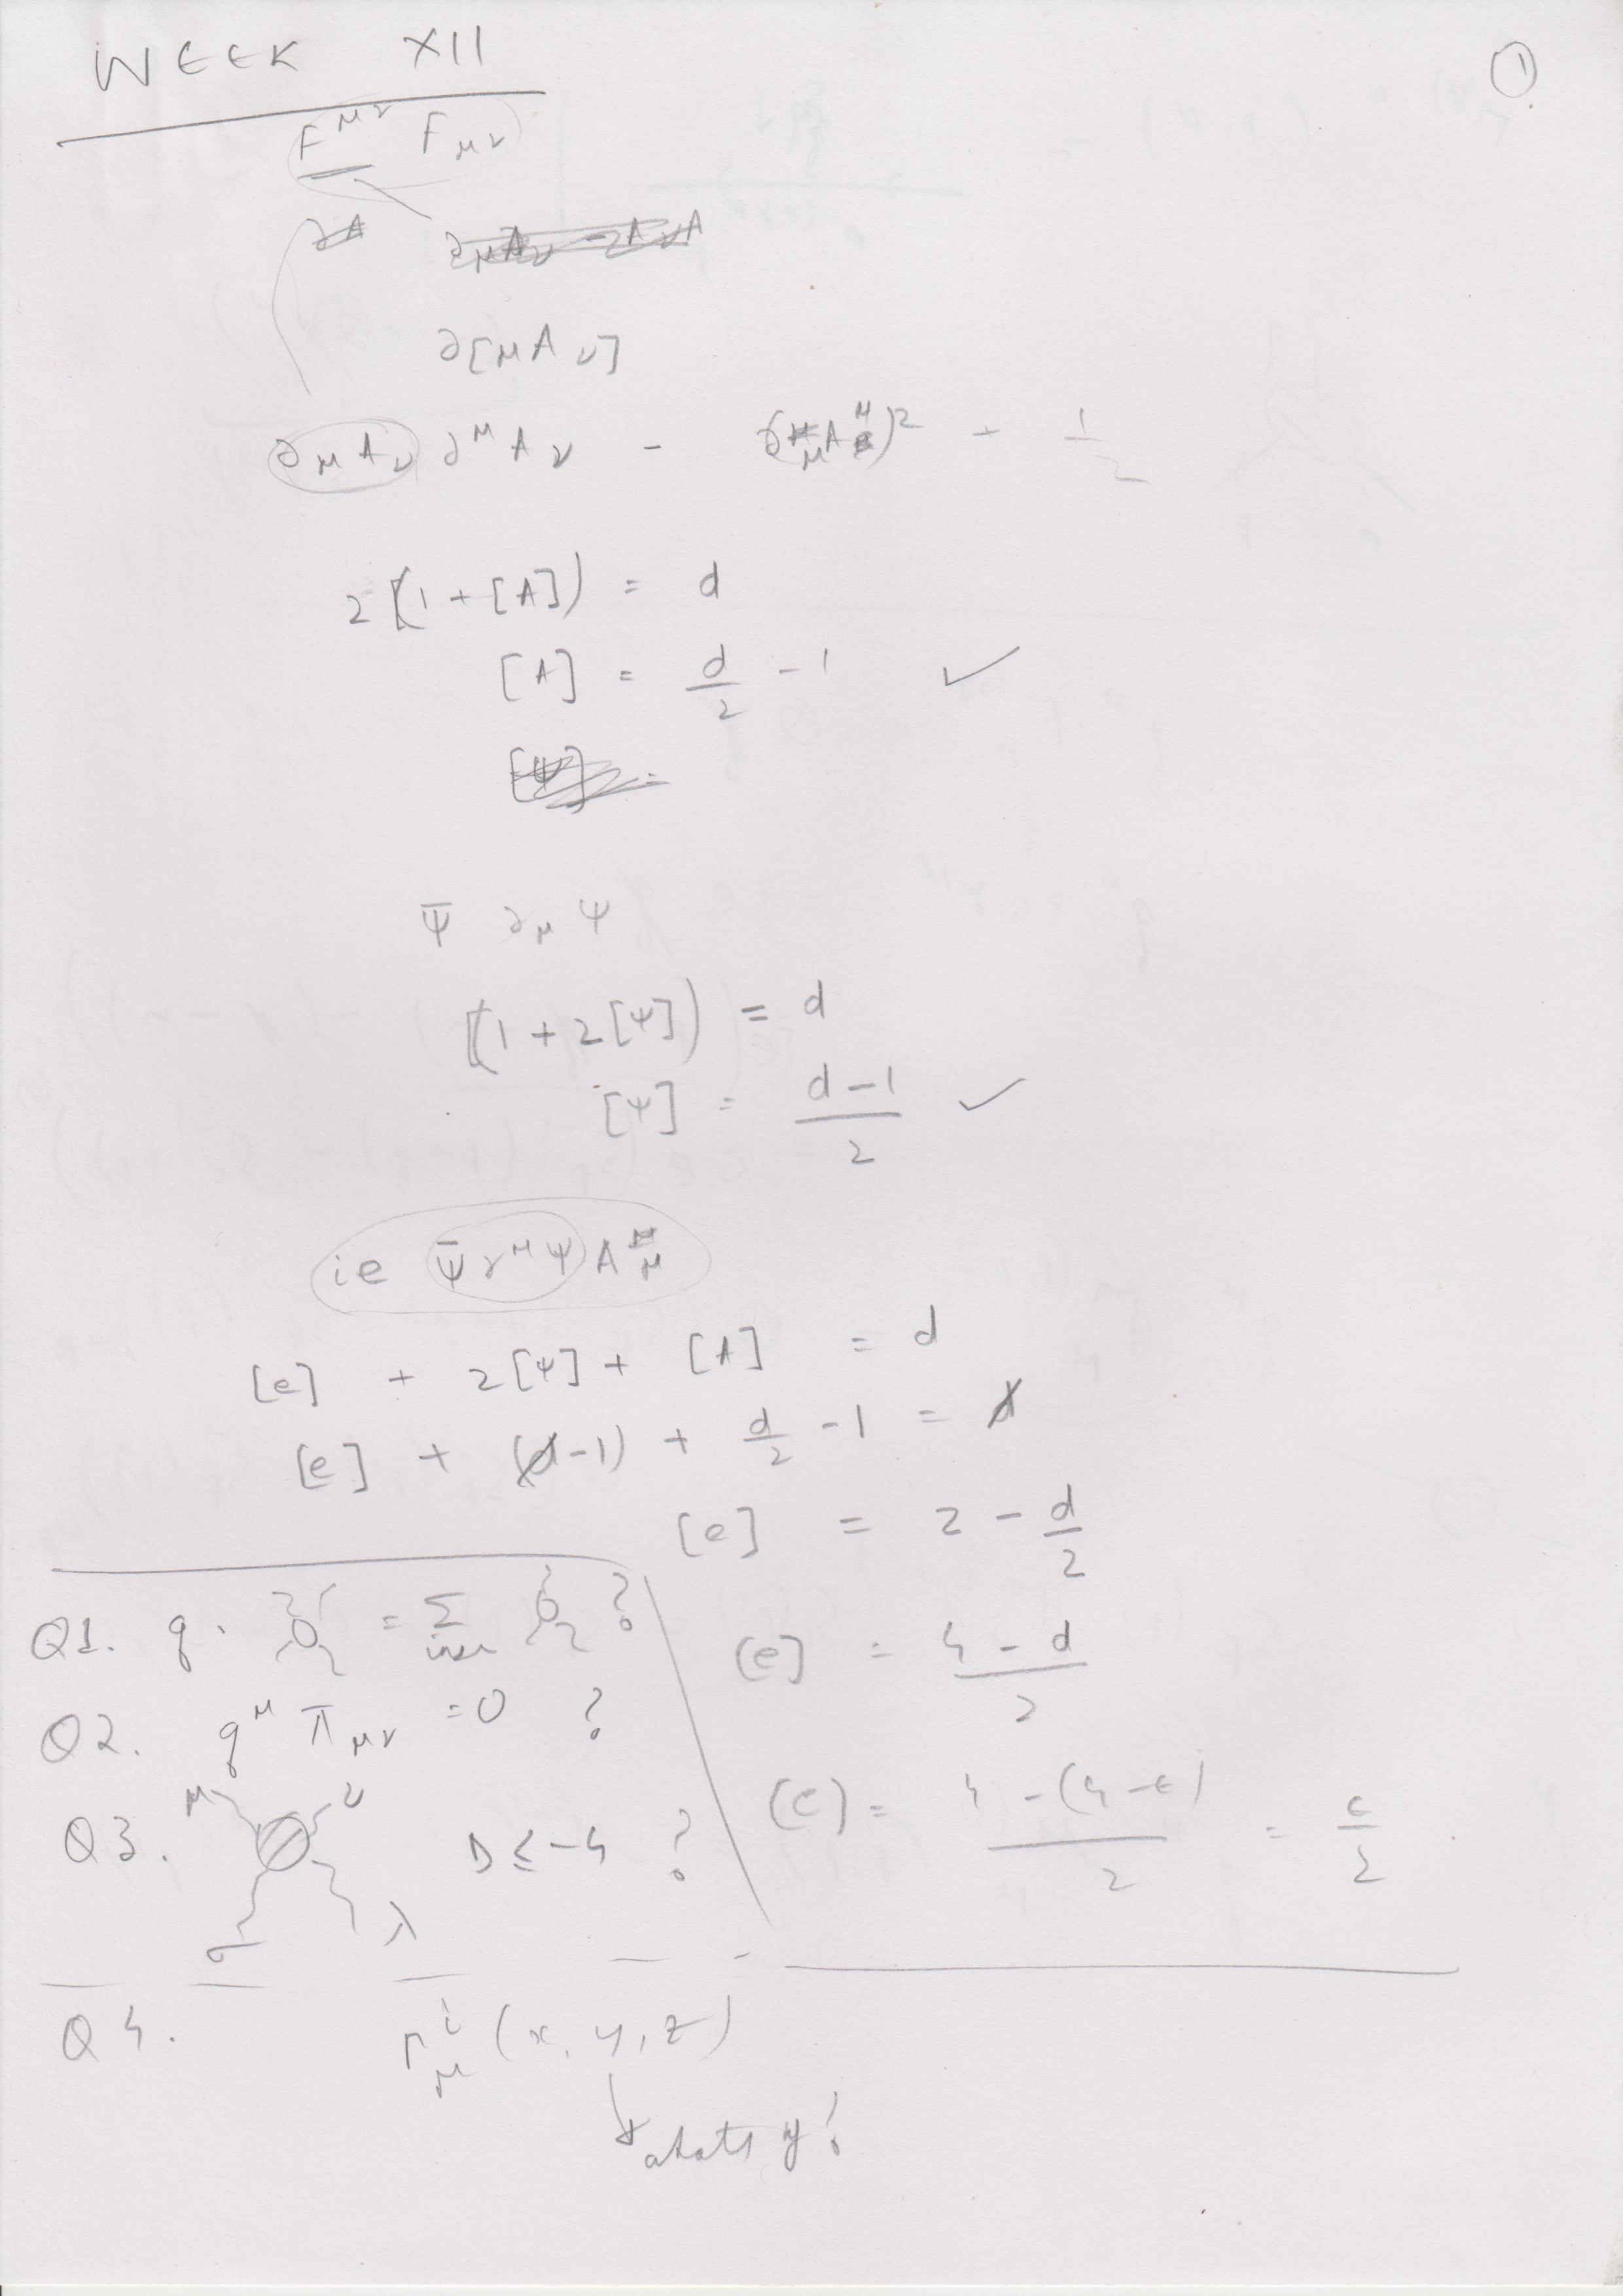 WEEK XII
①
F^{μν} F_{μν}
∂[μ A ν]
∂_μ A_ν ∂^μ A_ν - (∂_μ A^μ)² + 1/2
2(1 + [A]) = d
[A] = d/2 - 1 ✓
ψ̄ ∂_μ ψ
(1 + 2[ψ]) = d
[ψ] = (d-1)/2 ✓
ie ψ̄ γ^μ ψ A_μ
[e] + 2[ψ] + [A] = d
[e] + (d-1) + d/2 - 1 = d
[e] = 2 - d/2
[e] = (4 - d)/2
[e] = (4 - (4 - ε))/2 = ε/2
Q1. q · = Σ ?
Q2. q^μ π_{μν} = 0 ?
Q3. μ ν σ λ D ≤ -4 ?
Q4. Γ^i_μ (x, y, z)
whats y?